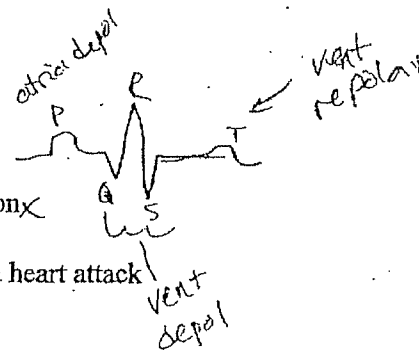 atria depol
P
R
vent
repolar
T
Q
S
onx
heart attack
vent
depol